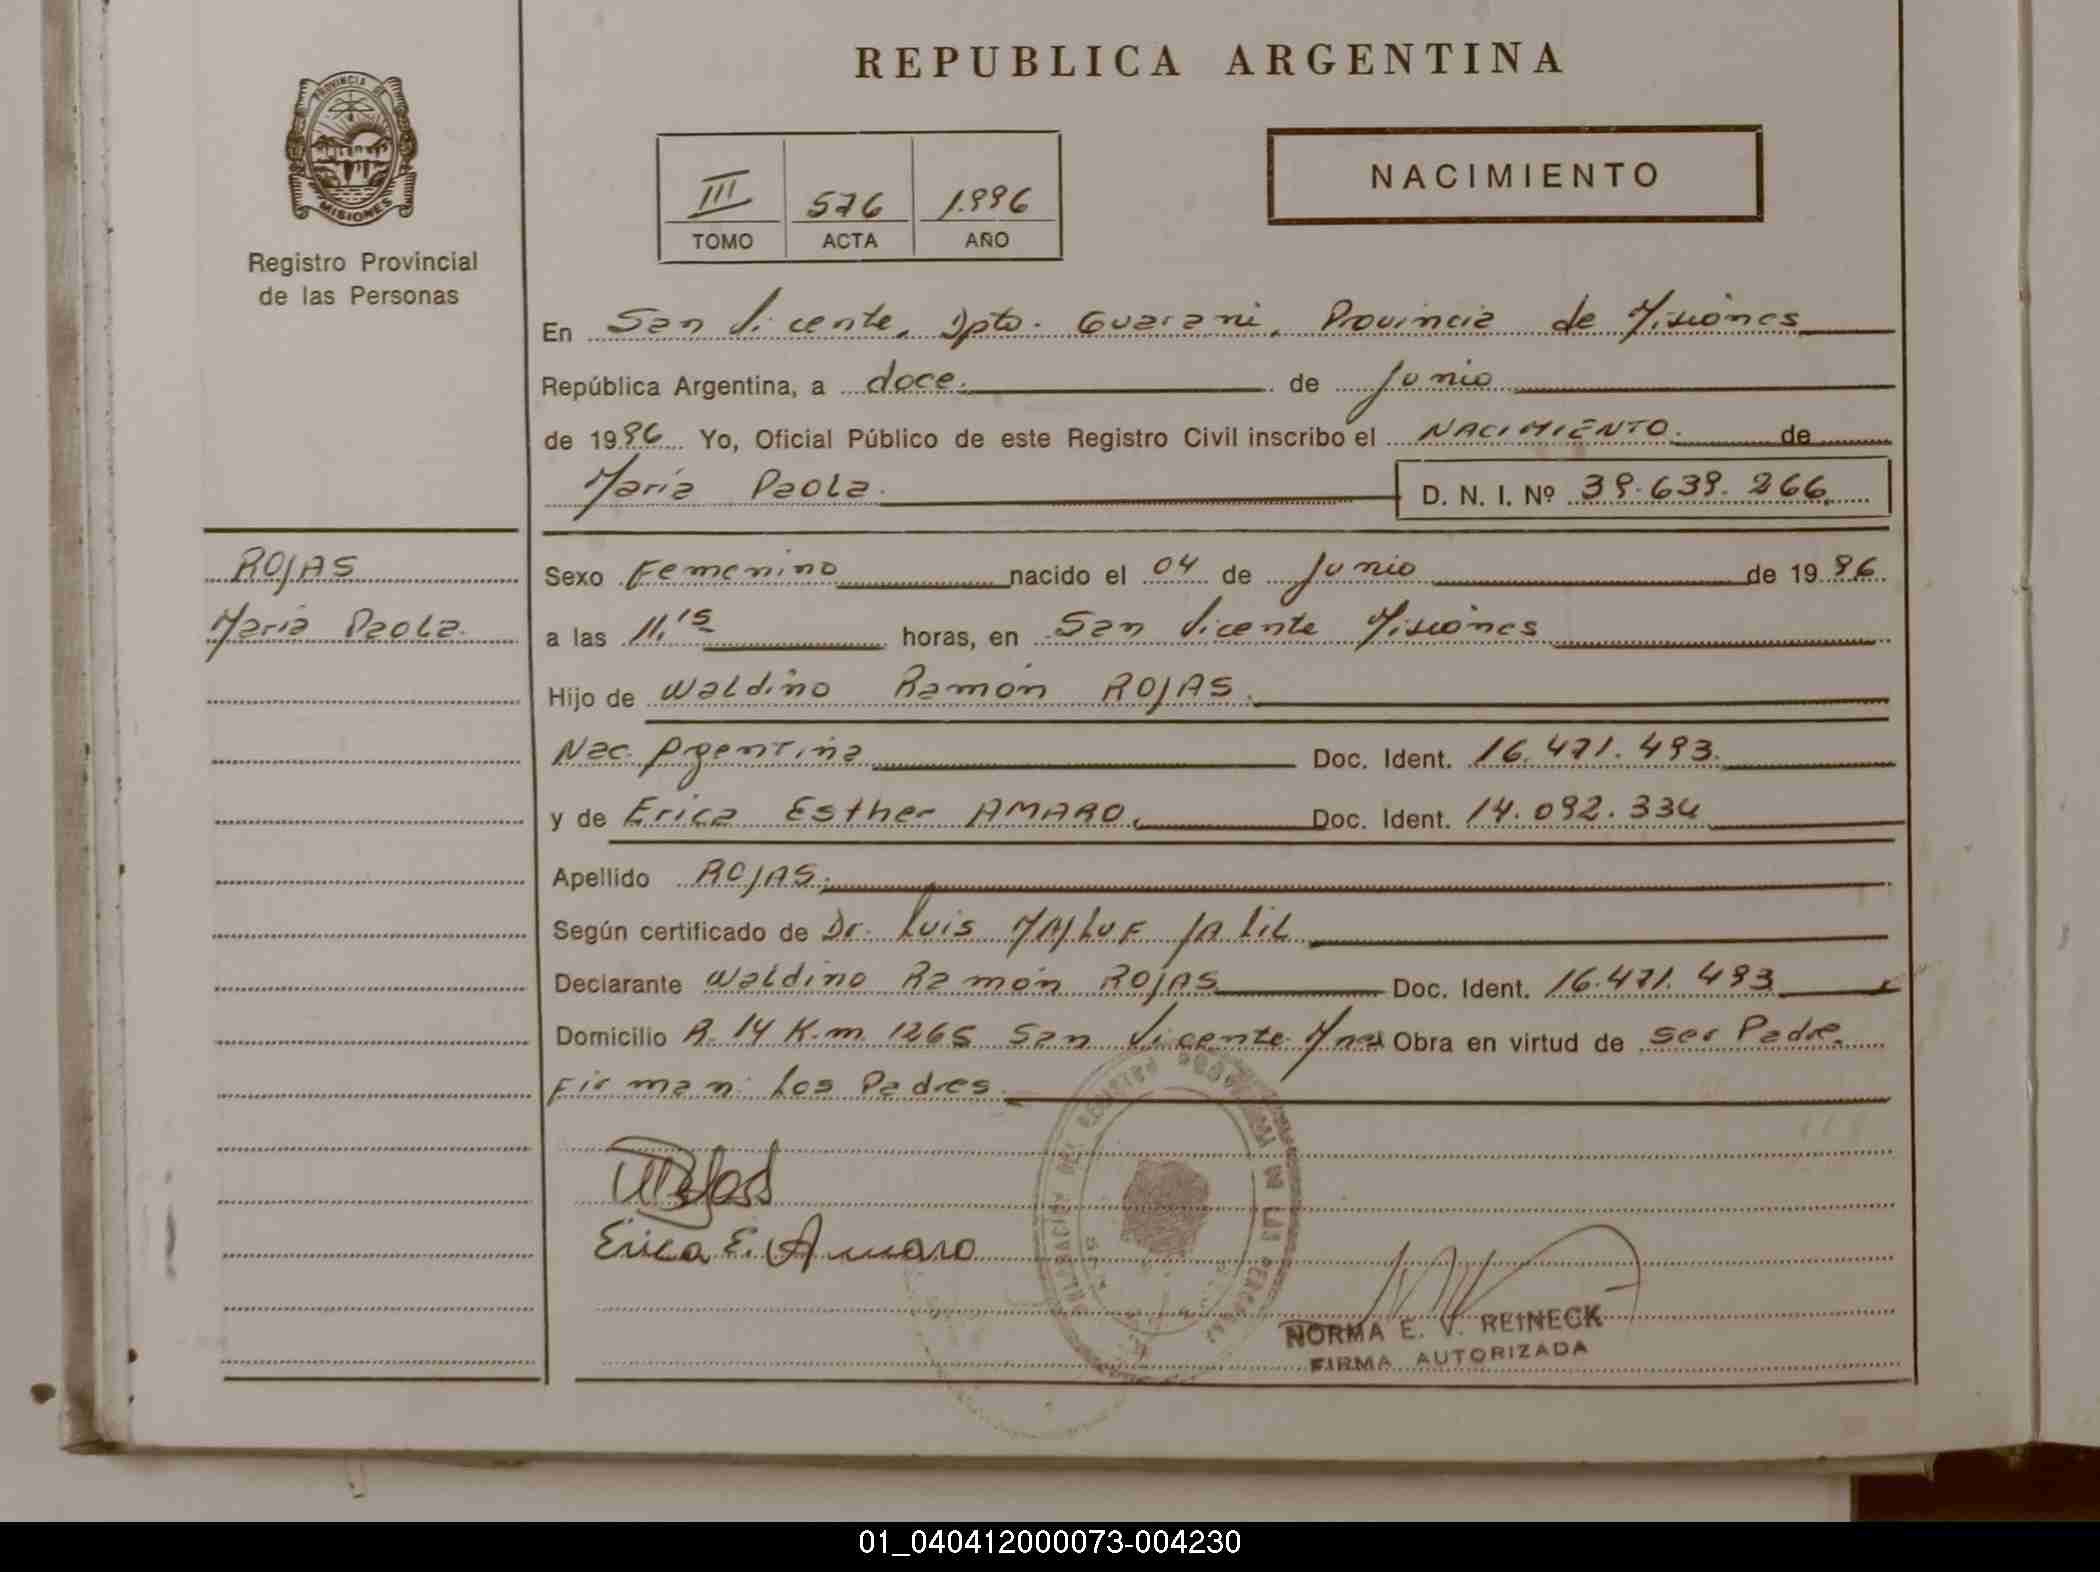 REPUBLICA ARGENTINA
PROVINCIA DE
MISIONES
Registro Provincial
de las Personas
III 576 1.996
TOMO ACTA AÑO
NACIMIENTO
En San Vicente, Dpto. Guarani, Provincia de Misiones
República Argentina, a doce. de Junio
de 1996 Yo, Oficial Público de este Registro Civil inscribo el NACIMIENTO. de
María Paola. D. N. I. Nº 39.639.266
ROJAS
María Paola.
Sexo Femenino nacido el 04 de Junio de 1996
a las 11,15 horas, en San Vicente Misiones
Hijo de Waldino Ramón ROJAS.
Nac. Argentina Doc. Ident. 16.471.493.
y de Erica Esther AMARO. Doc. Ident. 14.092.334
Apellido ROJAS.
Según certificado de Dr. Luis MALUF JALIL
Declarante Waldino Ramón ROJAS Doc. Ident. 16.471.493
Domicilio R. 14 K.m 1265 San Vicente Mnes Obra en virtud de ser Padre.
Firman: Los Padres.
Erica E. Amaro
NORMA E. V. REINECK
FIRMA AUTORIZADA
01_040412000073-004230